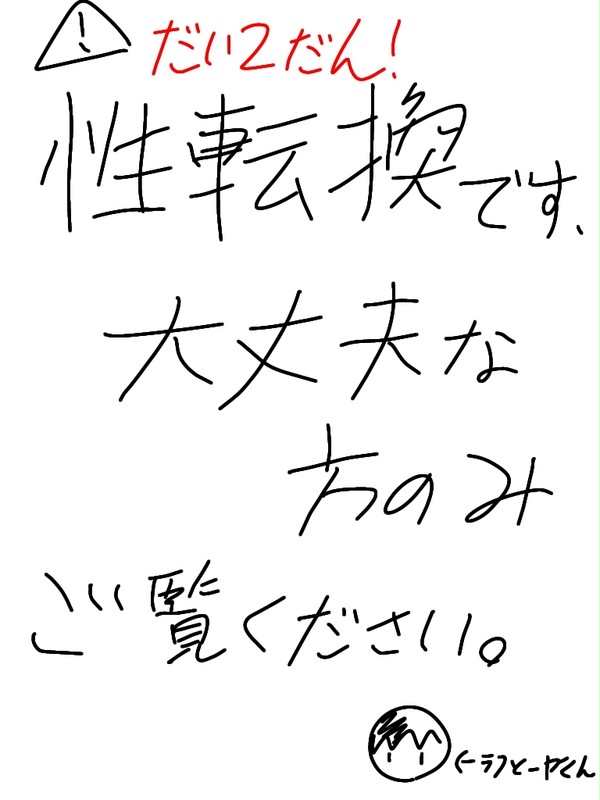 だい2だん!
性転換です、
大丈夫な
方のみ
ご覧ください。
←ラフとーヤくん